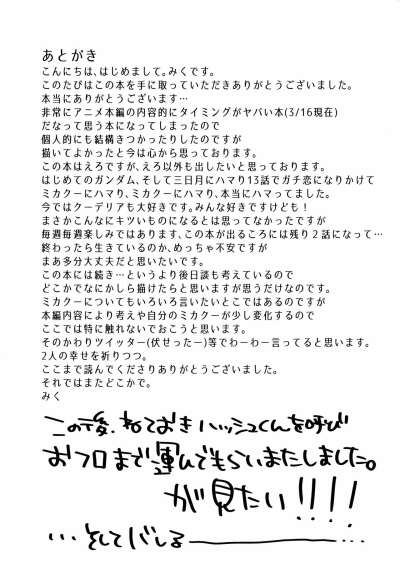 あとがき
こんにちは、はじめまして。みくです。
このたびはこの本を手に取っていただきありがとうございました。
本当にありがとうございます…
非常にアニメ本編の内容的にタイミングがヤバい本(3/16現在)
だなって思う本になってしまったので
個人的にも結構きつかったりしたのですが
描いてよかったと今は心から思っております。
この本はえろですが、えろ以外も出したいと思っております。
はじめてのガンダム、そして三日月にハマり13話でガチ恋になりかけて
ミカクーにハマり、ミカクーにハマり、本当にハマってました。
今ではクーデリアも大好きです。みんな好きですけども！
まさかこんなにキツいものになるとは思ってなかったですが
毎週毎週楽しみではあります、この本が出るころには残り２話になって…
終わったら生きているのか、めっちゃ不安ですが
まあ多分大丈夫だと思いたいです。
この本には続き…というより後日談も考えているので
どこかでなにかしら描けたらと思いますが思うだけなのです。
ミカクーについてもいろいろ言いたいとこではあるのですが
本編内容により考えや自分のミカクーが少し変化するので
ここでは特に触れないでおこうと思います。
そのかわりツイッター(伏せったー)等でわーわー言ってると思います。
2人の幸せを祈りつつ。
ここまで読んでくださりありがとうございました。
それではまたどこかで。
みく
この後、ねておきハッシュくんを呼び
おフロまで運んでもらいまたしました。
が見たい!!!!
・・・そしてバレる